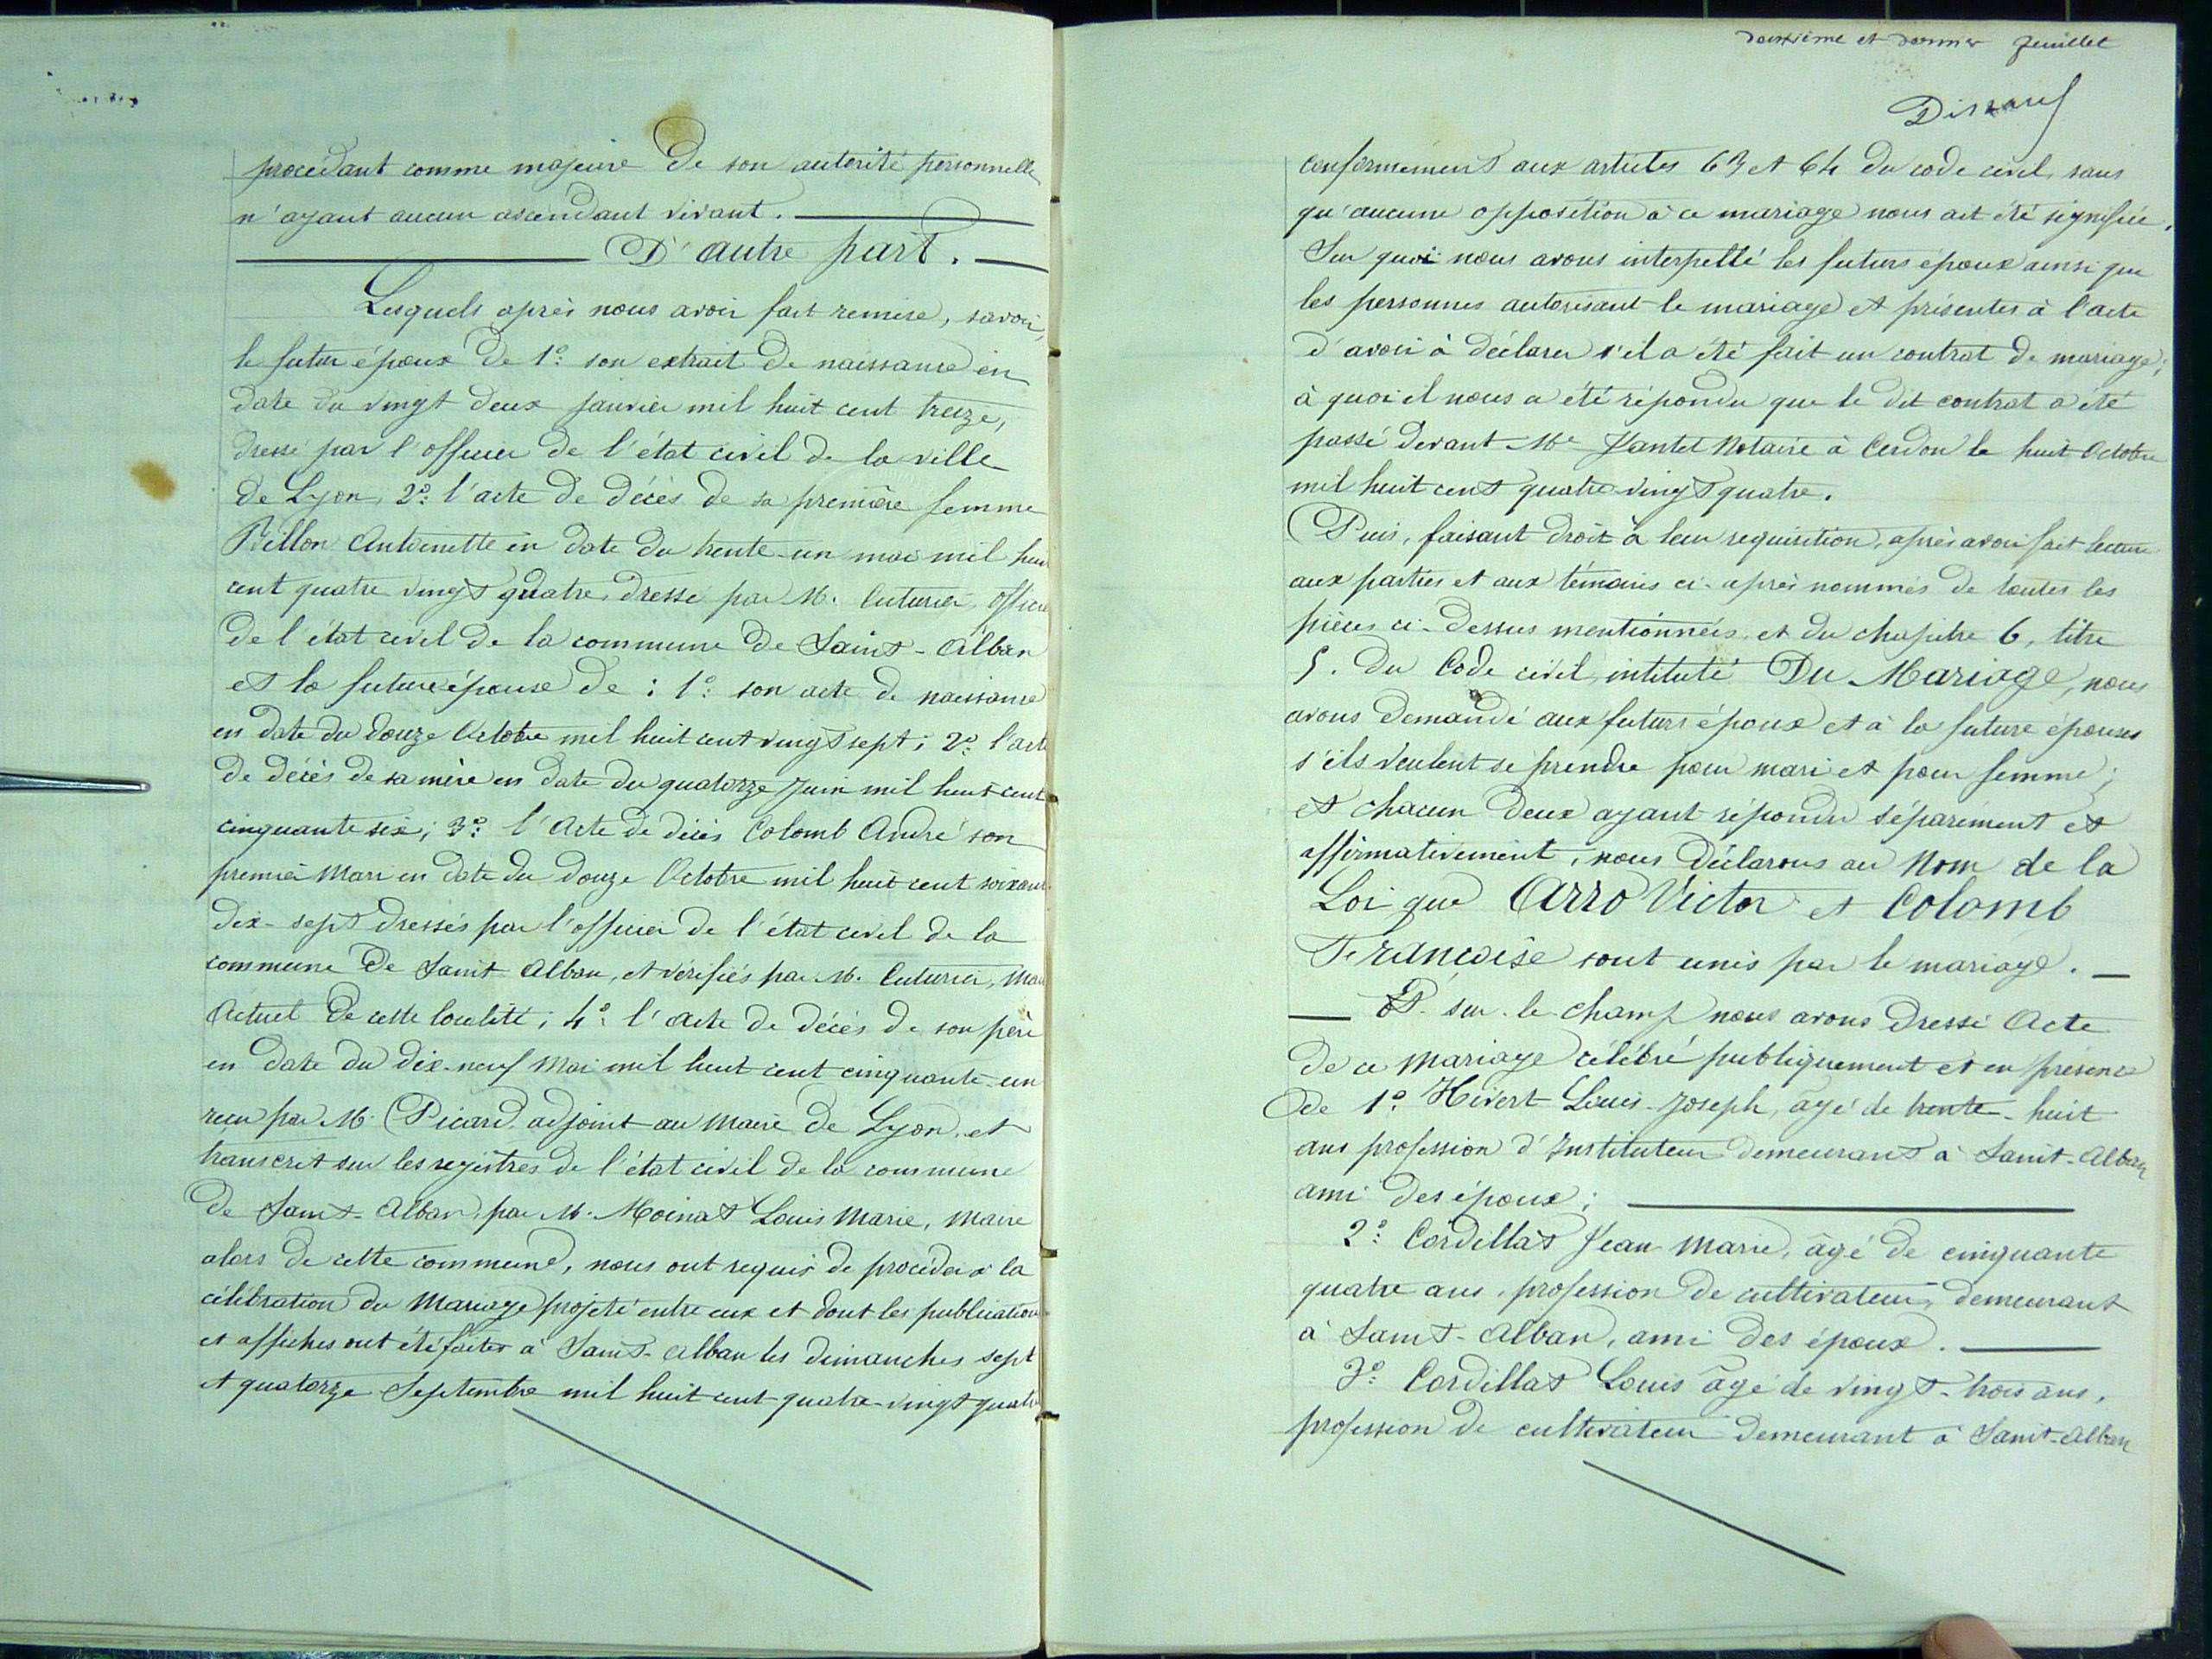 procédant comme majeure de son autorité personnelle
n'ayant aucun ascendant vivant.
D'autre part.
Lesquels après nous avoir fait remise, savoir,
le futur époux de 1º: son extrait de naissance en
date du vingt deux janvier mil huit cent treize,
dressé par l'officier de l'état civil de la ville
de Lyon, 2º: l'acte de décès de sa première femme
Billon Antoinette en date du trente-un mai mil huit
cent quatre vingt quatre, dressé par M. Cuturier, officier
de l'état civil de la commune de Saint-Alban
et la future épouse de : 1º: son acte de naissance
en date du douze Octobre mil huit cent vingt sept ; 2º: l'acte
de décès de sa mère en date du quatorze Juin mil huit cent
cinquante six ; 3º: l'Acte de décès Colomb André son
premier Mari en date du douze Octobre mil huit cent soixante
dix-sept dressés par l'officier de l'état civil de la
commune de Saint Alban, et vérifiés par M. Cuturier, Maire
Actuel de cette localité ; 4º: l'acte de décès de son père
en date du dix-neuf Mai mil huit cent cinquante-un
reçu par M. Picard adjoint au Maire de Lyon, et
transcrit sur les registres de l'état civil de la commune
de Saint-Alban, par M. Moinat Louis Marie, Maire
alors de cette commune, nous ont requis de procéder à la
célébration du Mariage projeté entre eux et dont les publications
et affiches ont été faites à Saint-Alban les dimanches sept
et quatorze Septembre mil huit cent quatre-vingt quatre
deuxième et dernier feuillet
conformément aux articles 63 et 64 du code civil, sans
qu'aucune opposition à ce mariage nous ait été signifiée.
Sur quoi nous avons interpellé les futurs époux ainsi que
les personnes autorisant le mariage et présentes à l'acte
d'avoir à déclarer s'il a été fait un contrat de mariage ;
à quoi il nous a été répondu que le dit contrat a été
passé devant Me Jantet Notaire à Cerdon le huit Octobre
mil huit cent quatre-vingt quatre.
Puis, faisant droit à leur requisition, après avoir fait lecture
aux parties et aux témoins ci-après nommés de toutes les
pièces ci-dessus mentionnées, et du chapitre 6, titre
5. du Code civil, intitulé Du Mariage, nous
avons demandé aux futurs époux et à la future épouses
s'ils veulent se prendre pour mari et pour femme ;
et chacun deux ayant répondu séparément et
affirmativement, nous déclarons au Nom de la
Loi que Carro Victor et Colomb
Françoise sont unis par le mariage.
Et sur-le-champ nous avons dressé Acte
de ce Mariage célébré publiquement et en présence
de 1º: Hivert Louis-Joseph, âgé de trente-huit
ans profession d'Instituteur demeurant à Saint-Alban
ami des époux ;
2º: Cordillat Jean Marie, âgé de cinquante
quatre ans, profession de cultivateur, demeurant
à Saint-Alban, ami des époux.
3º: Cordillat Louis âgé de vingt-trois ans,
profession de cultivateur demeurant à Saint-Alban